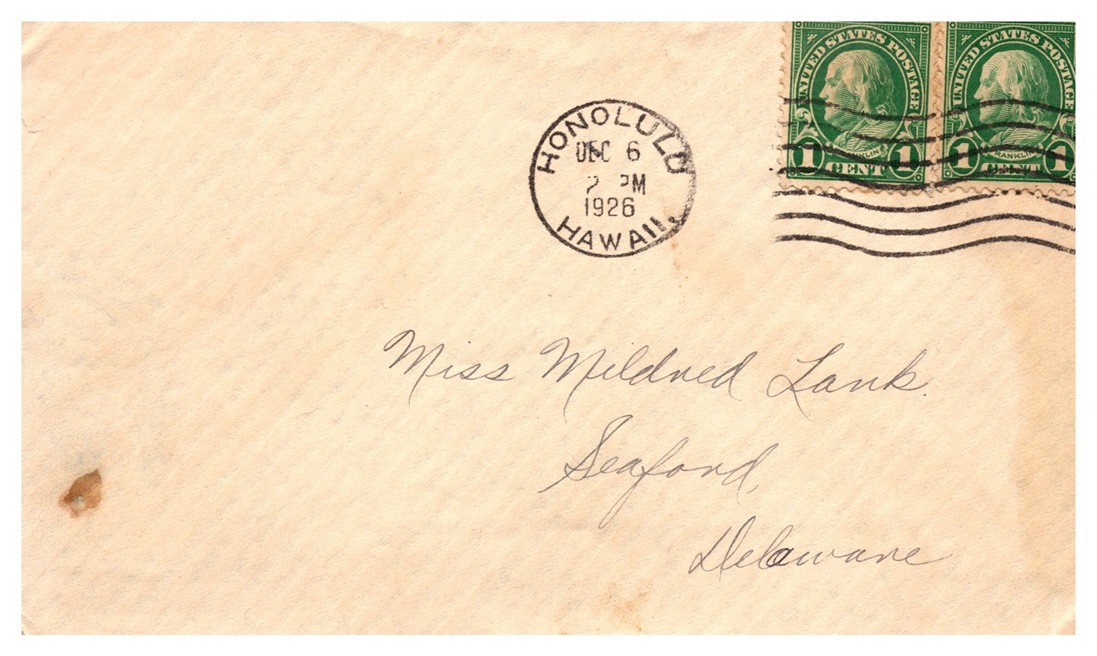 UNITED STATES POSTAGE
FRANKLIN
1 CENT 1
UNITED STATES POSTAGE
FRANKLIN
1 CENT 1
HONOLULU
DEC 6
2 PM
1926
HAWAII
Miss Mildred Lank.
Seaford,
Delaware